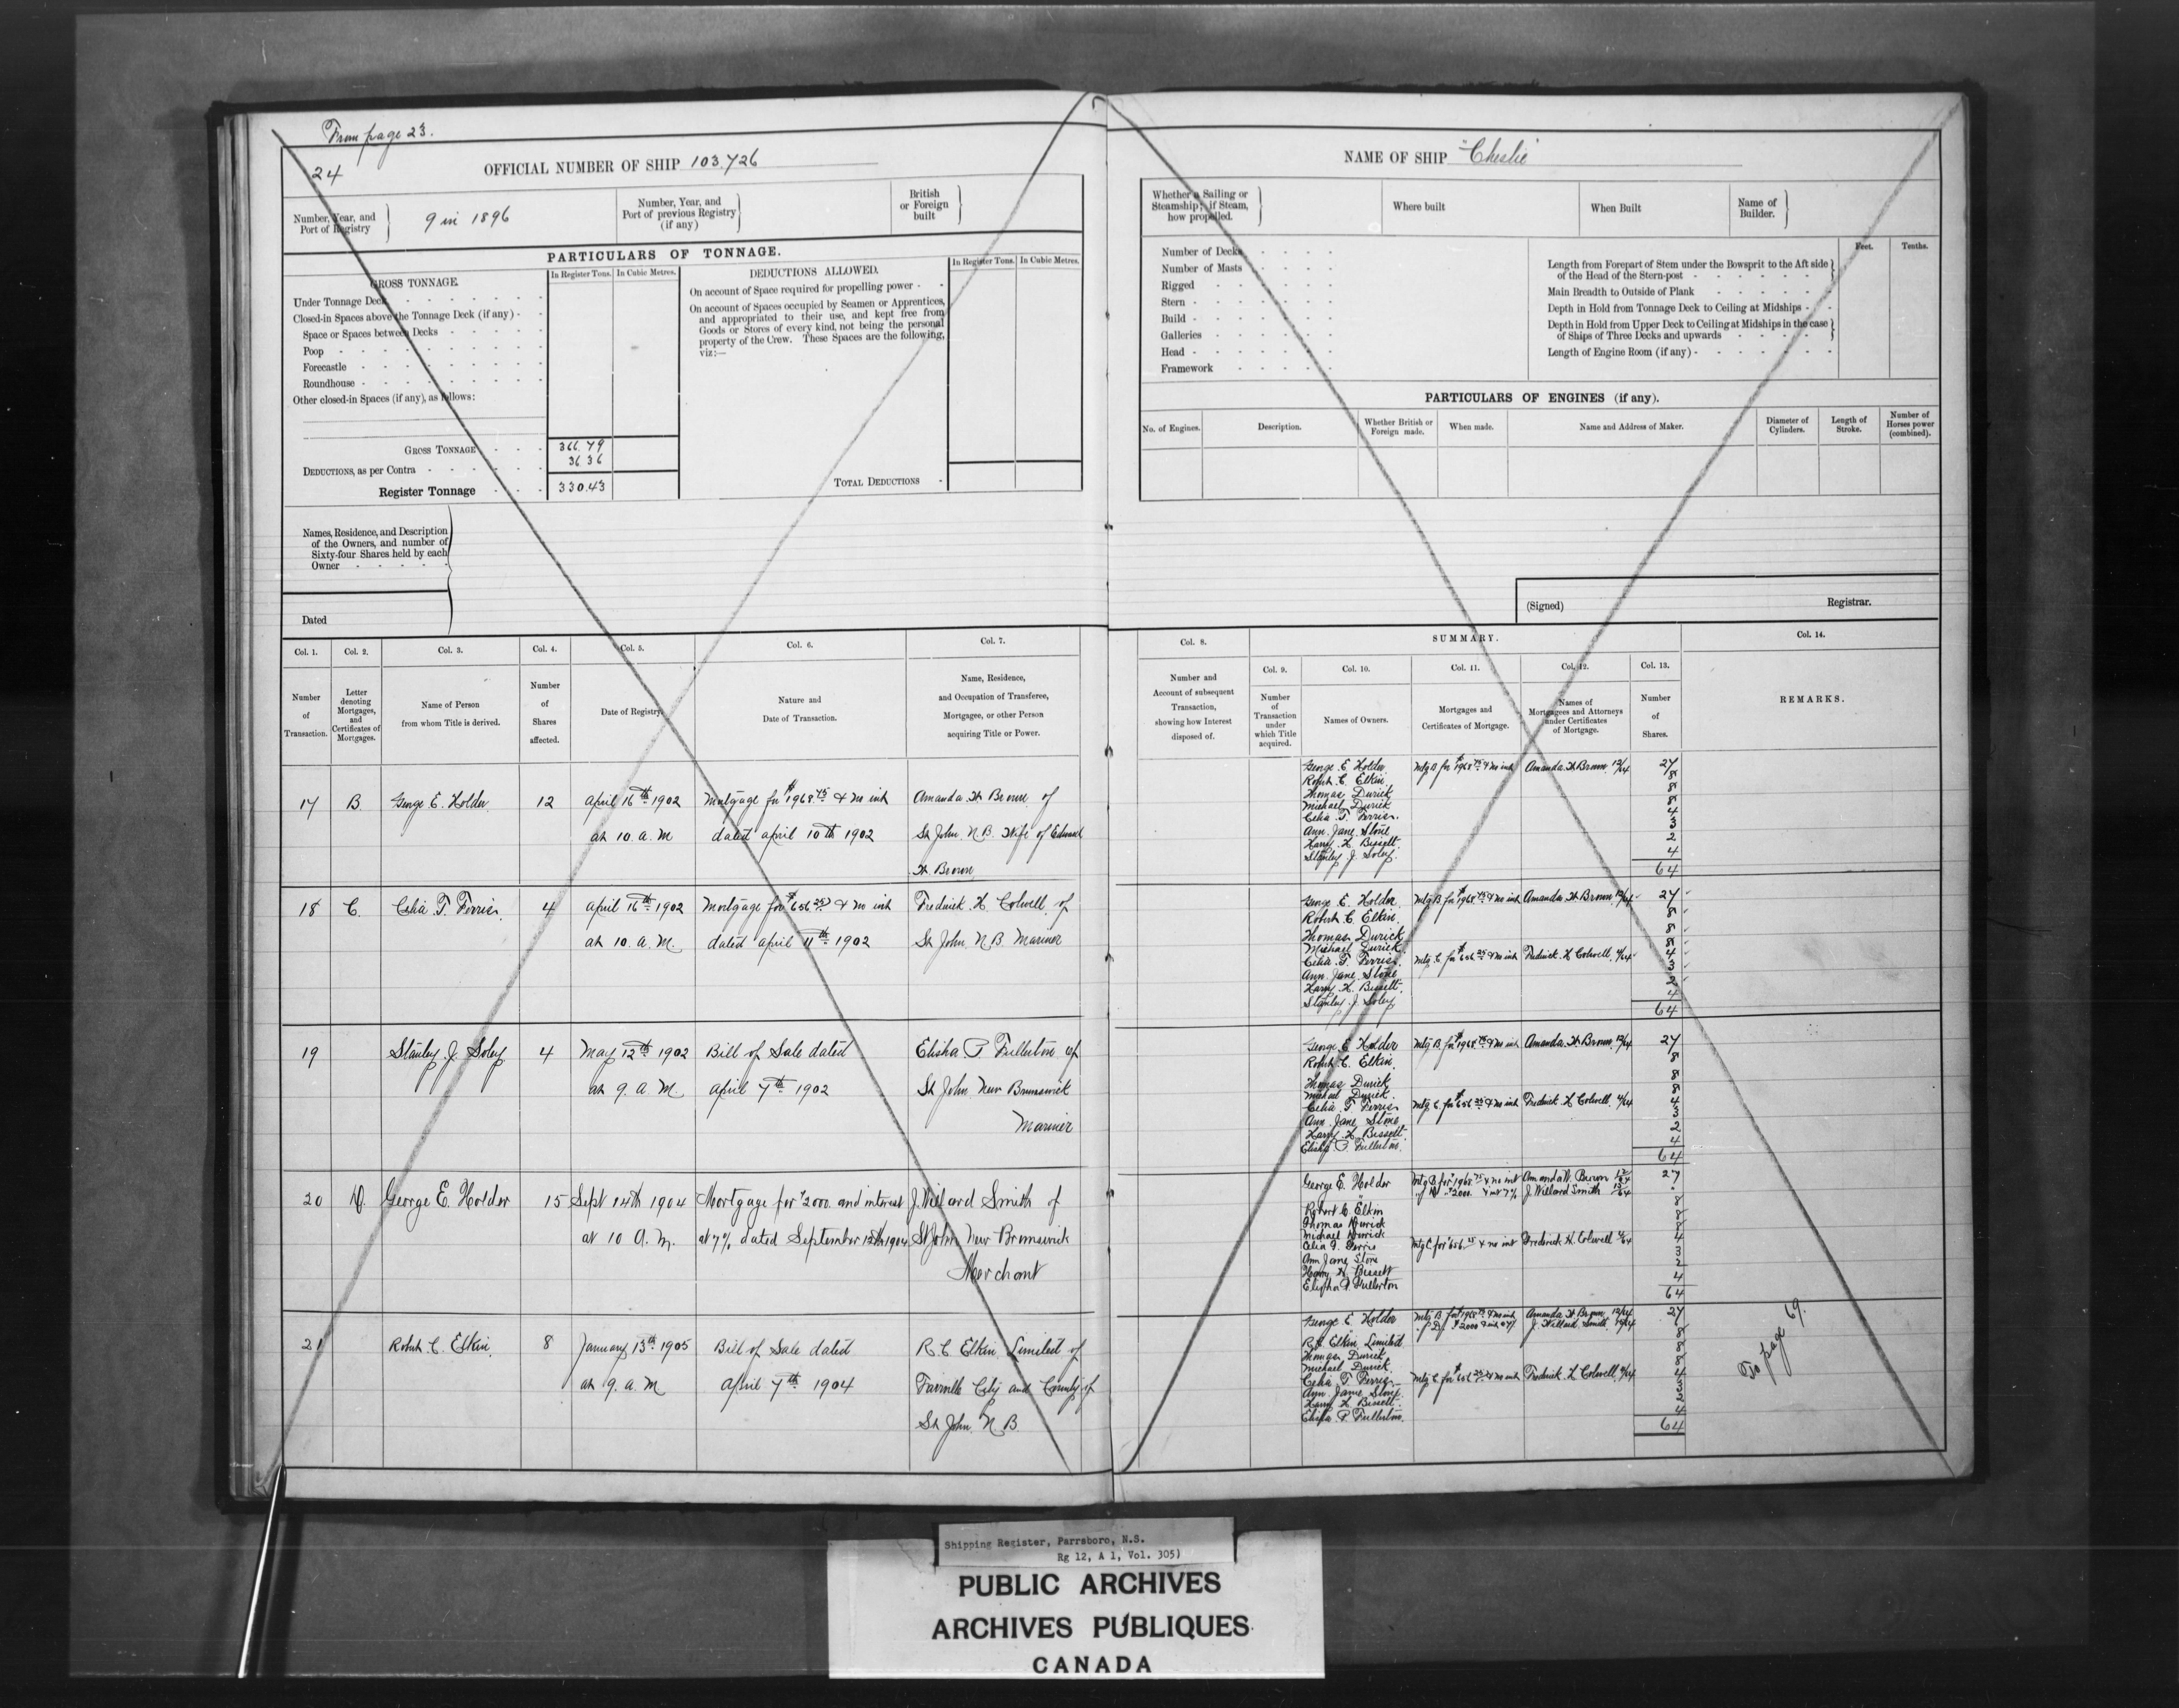 From page 23.
24
OFFICIAL NUMBER OF SHIP 103,726
Number, Year, and
Port of Registry
9 in 1896
Number, Year, and
Port of previous Registry
(if any)
British
or Foreign
built
PARTICULARS OF TONNAGE.
GROSS TONNAGE.
In Register Tons.
In Cubic Metres.
Under Tonnage Deck
Closed-in Spaces above the Tonnage Deck (if any)
Space or Spaces between Decks
Poop
Forecastle
Roundhouse
Other closed-in Spaces (if any), as follows:
GROSS TONNAGE 366.79
DEDUCTIONS, as per Contra 36 36
Register Tonnage 330.43
DEDUCTIONS ALLOWED.
In Register Tons.
In Cubic Metres.
On account of Space required for propelling power
On account of Spaces occupied by Seamen or Apprentices,
and appropriated to their use, and kept free from
Goods or Stores of every kind, not being the personal
property of the Crew. These Spaces are the following,
viz:—
TOTAL DEDUCTIONS
Names, Residence, and Description
of the Owners, and number of
Sixty-four Shares held by each
Owner
Dated
Col. 1.
Number
of
Transaction.
Col. 2.
Letter
denoting
Mortgages,
and
Certificates of
Mortgages.
Col. 3.
Name of Person
from whom Title is derived.
Col. 4.
Number
of
Shares
affected.
Col. 5.
Date of Registry.
Col. 6.
Nature and
Date of Transaction.
Col. 7.
Name, Residence,
and Occupation of Transferee,
Mortgagee, or other Person
acquiring Title or Power.
17 B. George E. Holder 12 April 16th 1902 Mortgage for $1968.75 & no int Amanda W Brown of
at 10. a. m dated April 10th 1902 St John. N. B. Wife of Edward
W Brown
18 C. Celia F. Ferris 4 April 16th 1902 Mortgage for $656.25 & no int Fredrick H. Colwell of
at 10. a. m. dated April 11th 1902 St John, N B. Mariner
19 Stanley J. Soley 4 May 12th 1902 Bill of Sale dated Elisha P Fullerton of
at 9. a. m. April 7th 1902 St John New Brunswick
Mariner
20 D. George E. Holder 15 Sept 14th 1904 Mortgage for $2000. and interest J. Willard Smith of
at 10 A. M. at 7% dated September 13th 1904 St John New Brunswick
Merchant
21 Robert C. Elkin 8 January 13th 1905 Bill of Sale dated R. C. Elkin Limited of
at 9. a. m April 7th 1904 City and County of
St John N B
NAME OF SHIP "Cheslie"
Whether a Sailing or
Steamship; if Steam,
how propelled.
Where built
When Built
Name of
Builder.
Number of Decks
Number of Masts
Rigged
Stern
Build
Galleries
Head
Framework
Feet.
Tenths.
Length from Forepart of Stem under the Bowsprit to the Aft side
of the Head of the Stern-post
Main Breadth to Outside of Plank
Depth in Hold from Tonnage Deck to Ceiling at Midships
Depth in Hold from Upper Deck to Ceiling at Midships in the case
of Ships of Three Decks and upwards
Length of Engine Room (if any)
PARTICULARS OF ENGINES (if any).
No. of Engines.
Description.
Whether British or
Foreign made.
When made.
Name and Address of Maker.
Diameter of
Cylinders.
Length of
Stroke.
Number of
Horses power
(combined).
(Signed) Registrar.
Col. 8.
Number and
Account of subsequent
Transaction,
showing how Interest
disposed of.
SUMMARY.
Col. 9.
Number
of
Transaction
under
which Title
acquired.
Col. 10.
Names of Owners.
Col. 11.
Mortgages and
Certificates of Mortgage.
Col. 12.
Names of
Mortgagees and Attorneys
under Certificates
of Mortgage.
Col. 13.
Number
of
Shares.
Col. 14.
REMARKS.
George E. Holder Mtg B for $1968.75 & no int Amanda W Brown 12/64 27
Robert C. Elkin 8
Thomas Durick 8
Michael Durick 8
Celia F. Ferris. 4
Ann. Jane. Stone 3
Harry H. Bissett. 2
Stanley J. Soley. 4
64
George E. Holder Mtg B for $1968.75 & no int Amanda W Brown 12/64 27
Robert C Elkin. 8
Thomas Durick 8
Michael Durick. 8
Celia F. Ferris. Mtg. C for $656.25 & no int Fredrick H Colwell, 4/64 4
Ann. Jane Stone 3
Harry H. Bissett. 2
Stanley J. Soley 4
64
George E Holder Mtg B for $1968.75 & no int Amanda W Brown 12/64 27
Robert C. Elkin. 8
Thomas Durick 8
Michael Durick. 8
Celia F. Ferris Mtg. C for $656.25 & no int Fredrick H Colwell, 4/64 4
Ann Jane Stone 3
Harry H. Bissett. 2
Elisha P. Fullerton. 4
64
George E. Holder Mtg B for $1968.75 & no int Amanda W. Brown 12/64 27
" D " $2000. & int 7% J. Willard Smith 15/64
Robert C. Elkin 8
Thomas Durick 8
Michael Durick 8
Celia F. Ferris Mtg C for $656.25 & no int Frederick H. Colwell 4/64 4
Ann Jane Stone 3
Harry H. Bissett 2
Elisha P. Fullerton 4
64
George E. Holder Mtg B for $1968.75 & no int Amanda W. Brown 12/64 27
" D. $2000 & int 7% J. Willard Smith 15/64
R. C. Elkin Limited 8
Thomas Durick 8
Michael Durick. 8
Celia F. Ferris Mtg C for $656.25 & no int Fredrick H Colwell 4/64 4
Ann. Jane Stone 3
Harry H. Bissett. 2
Elisha P. Fullerton. 4
64
To page 69.
Shipping Register, Parrsboro, N.S.
Rg 12, A 1, Vol. 305)
PUBLIC ARCHIVES
ARCHIVES PUBLIQUES
CANADA